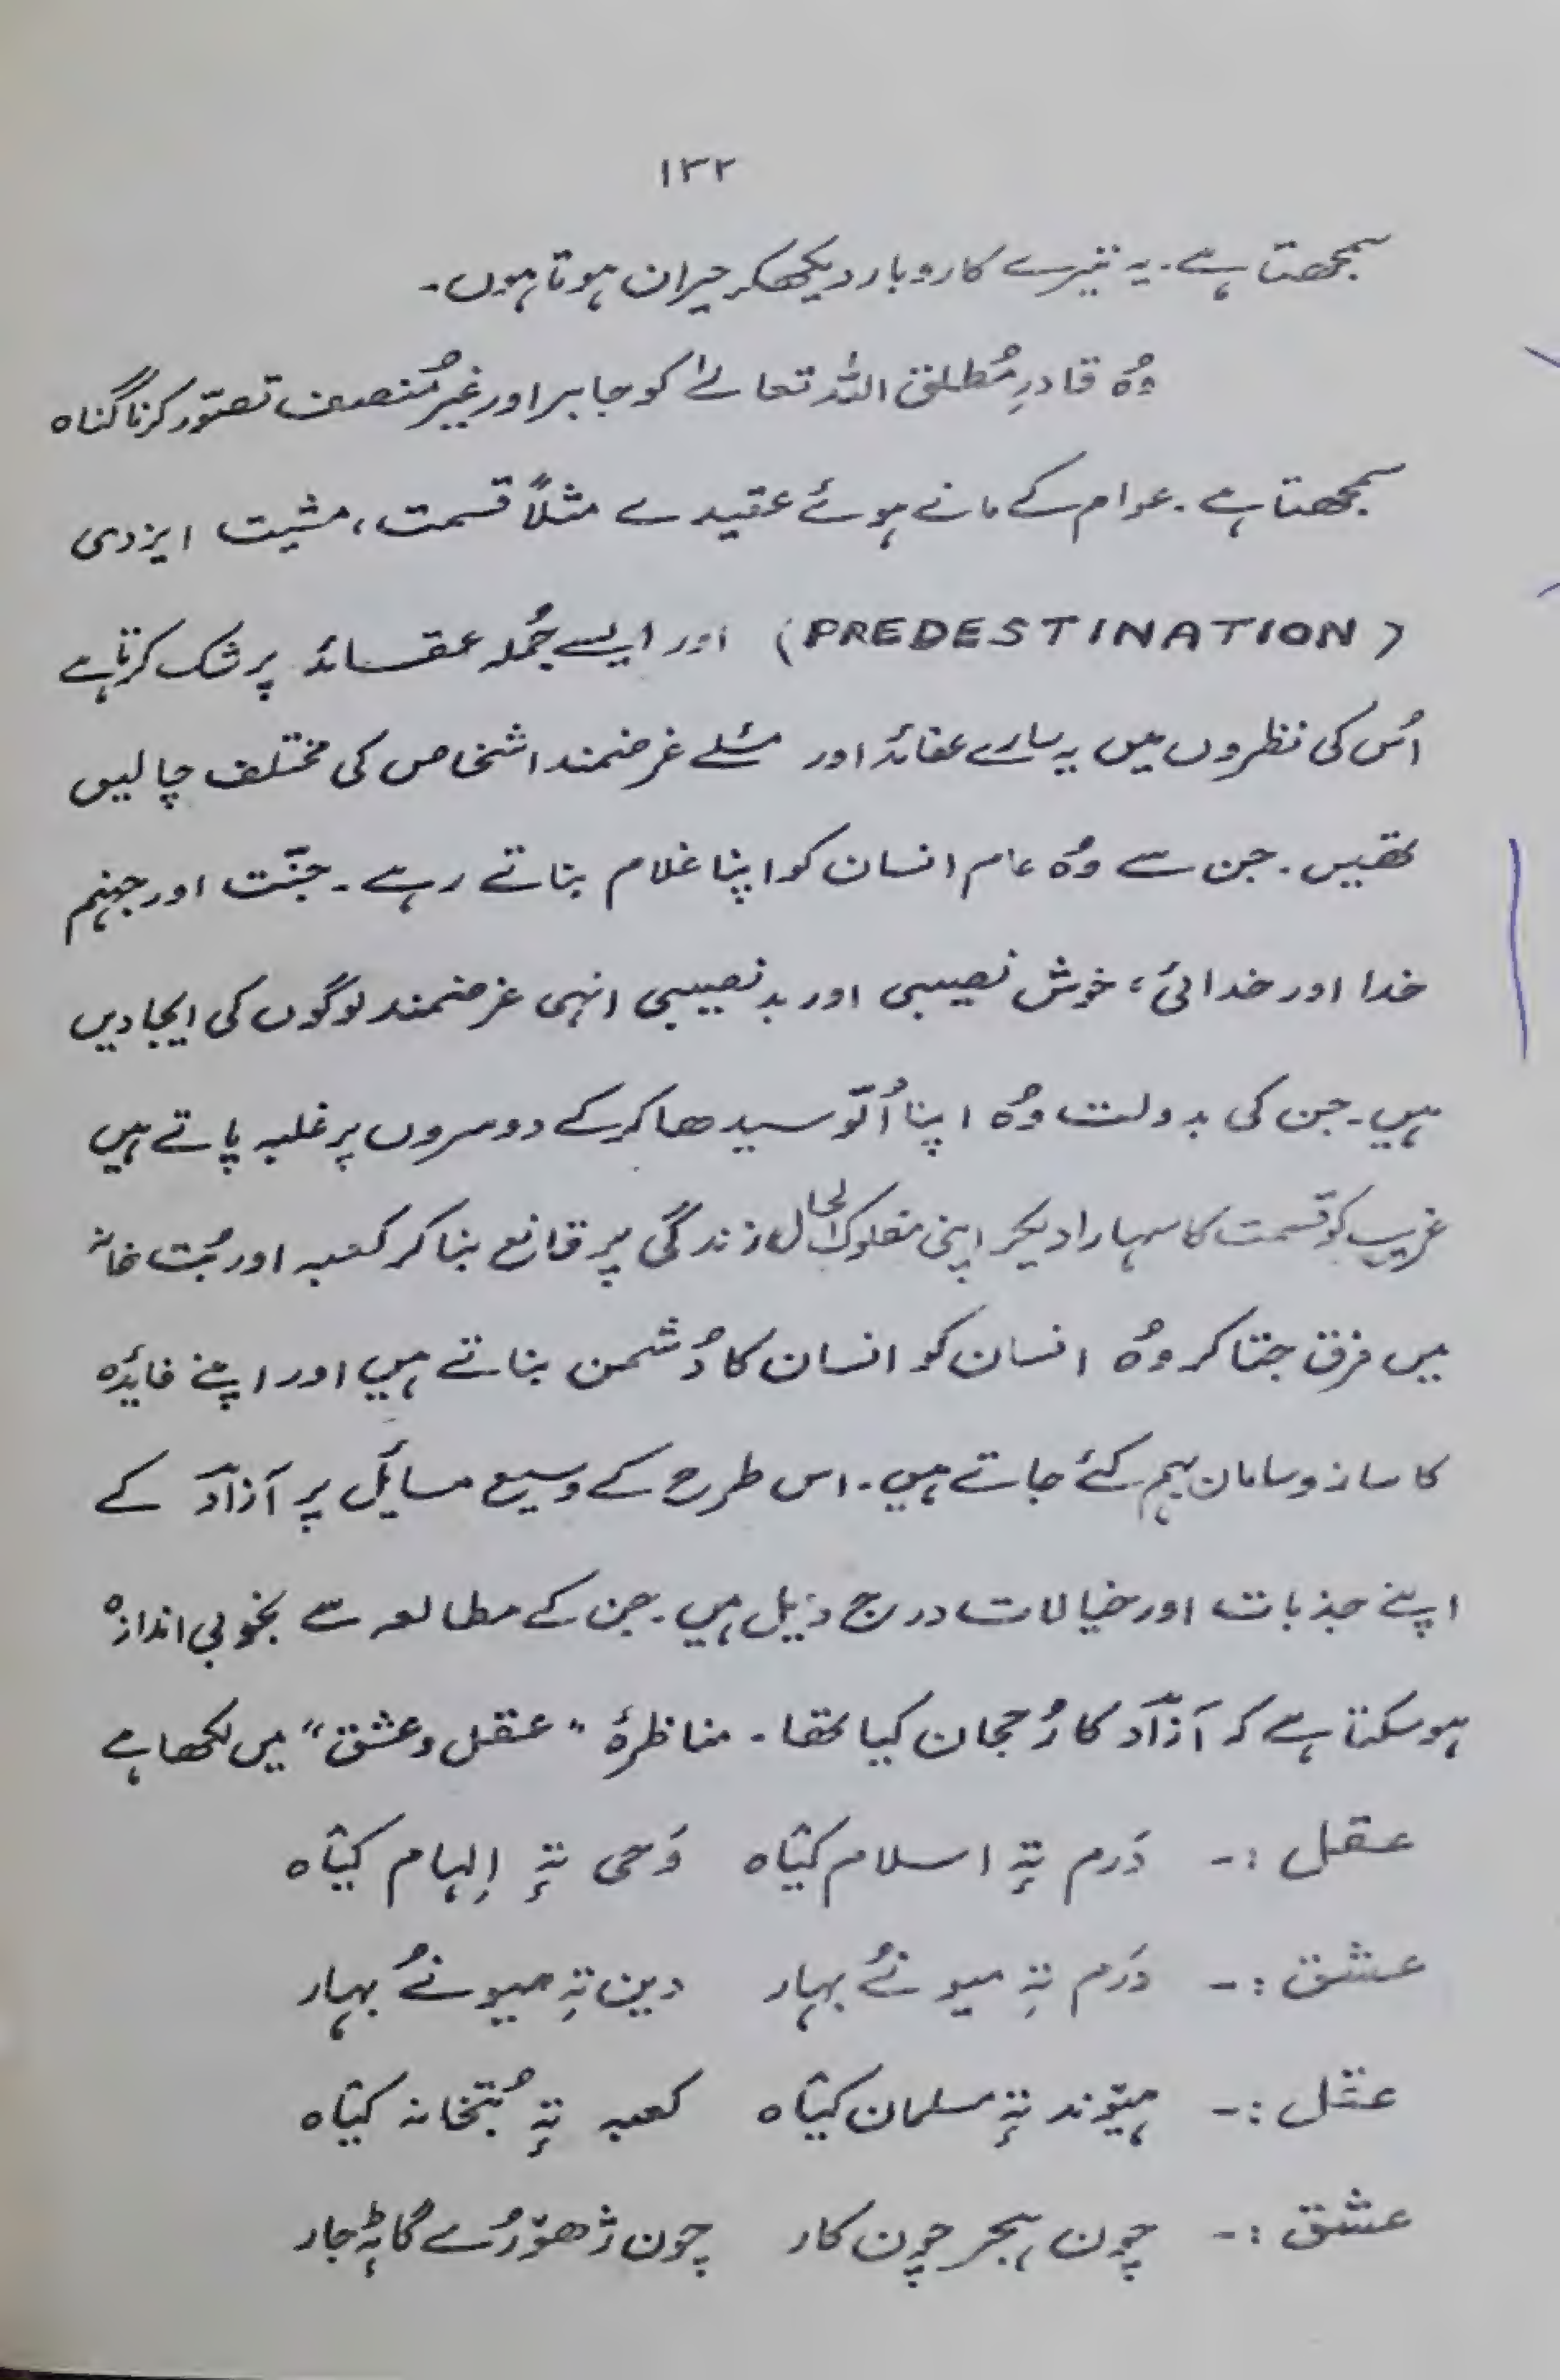 ۱۳۲
سمجھتا ہے۔ یہ تیرے کاروبار دیکھکر حیران ہوتا ہوں۔
وُہ قادرِ مُطلق اللہ تعالےٰ کو جابر اور غیر مُنصف تصوّر کرنا گناہ
سمجھتا ہے۔ عوام کے مانے ہوئے عقیدے مثلاً قسمت، مشیت ایزدی
(PREDESTINATION) اور ایسے جُملہ عقائد پر شک کرتا ہے
اُس کی نظروں میں یہ سارے عقائد اور مسئلے غرضمند اشخاص کی مختلف چالیں
تھیں۔ جن سے وُہ عام انسان کو اپنا غلام بناتے رہے۔ جنّت اور جہنم
خدا اور خدائی، خوش نصیبی اور بد نصیبی انہی غرضمند لوگوں کی ایجادیں
ہیں۔ جن کی بدولت وُہ اپنا اُلّو سیدھا کرکے دوسروں پر غلبہ پاتے ہیں
غریب کو قسمت کا سہارا دیکر اپنی مفلوک الحال زندگی پر قانع بنا کر کعبہ اور بُت خانہ
میں فرق جتا کر وُہ انسان کو انسان کا دُشمن بناتے ہیں اور اپنے فایٔدہ
کا ساز و سامان بہم کئے جاتے ہیں۔ اس طرح کے وسیع مسایٔل پر آزاد کے
اپنے جذبات اور خیالات درج ذیل ہیں۔ جن کے مطالعہ سے بخوبی اندازہ
ہو سکتا ہے کہ آزاد کا رُحجان کیا تھا۔ مناظرۂ "عقل و عشق" میں لکھا ہے
عقل :- دَرم تہٕ اسلام کیٛاہ وَحی تہٕ اِلہام کیٛاہ
عشق :- دَرم تہِ میونےُ بہار دین تہِ میونےُ بہار
عقل :- ہیٚوند تہٕ مسلمان کیٛاہ کعبہ تہٕ بُتخانہ کیٛاہ
عشق :- چون ہجر چون کار چون ژھوٚرُے گاٹہٕ جار